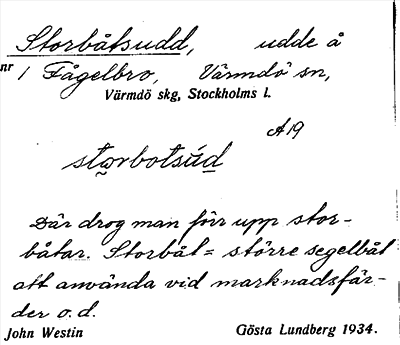 Storbåtsudd, udde å
nr 1 Fågelbro, Värmdö sn,
Värmdö skg, Stockholms l.
A 19
storbotsúd
Där drog man förr upp stor-
båtar. Storbåt = större segelbåt
att använda vid marknadsfär-
der o.d.
John Westin Gösta Lundberg 1934.